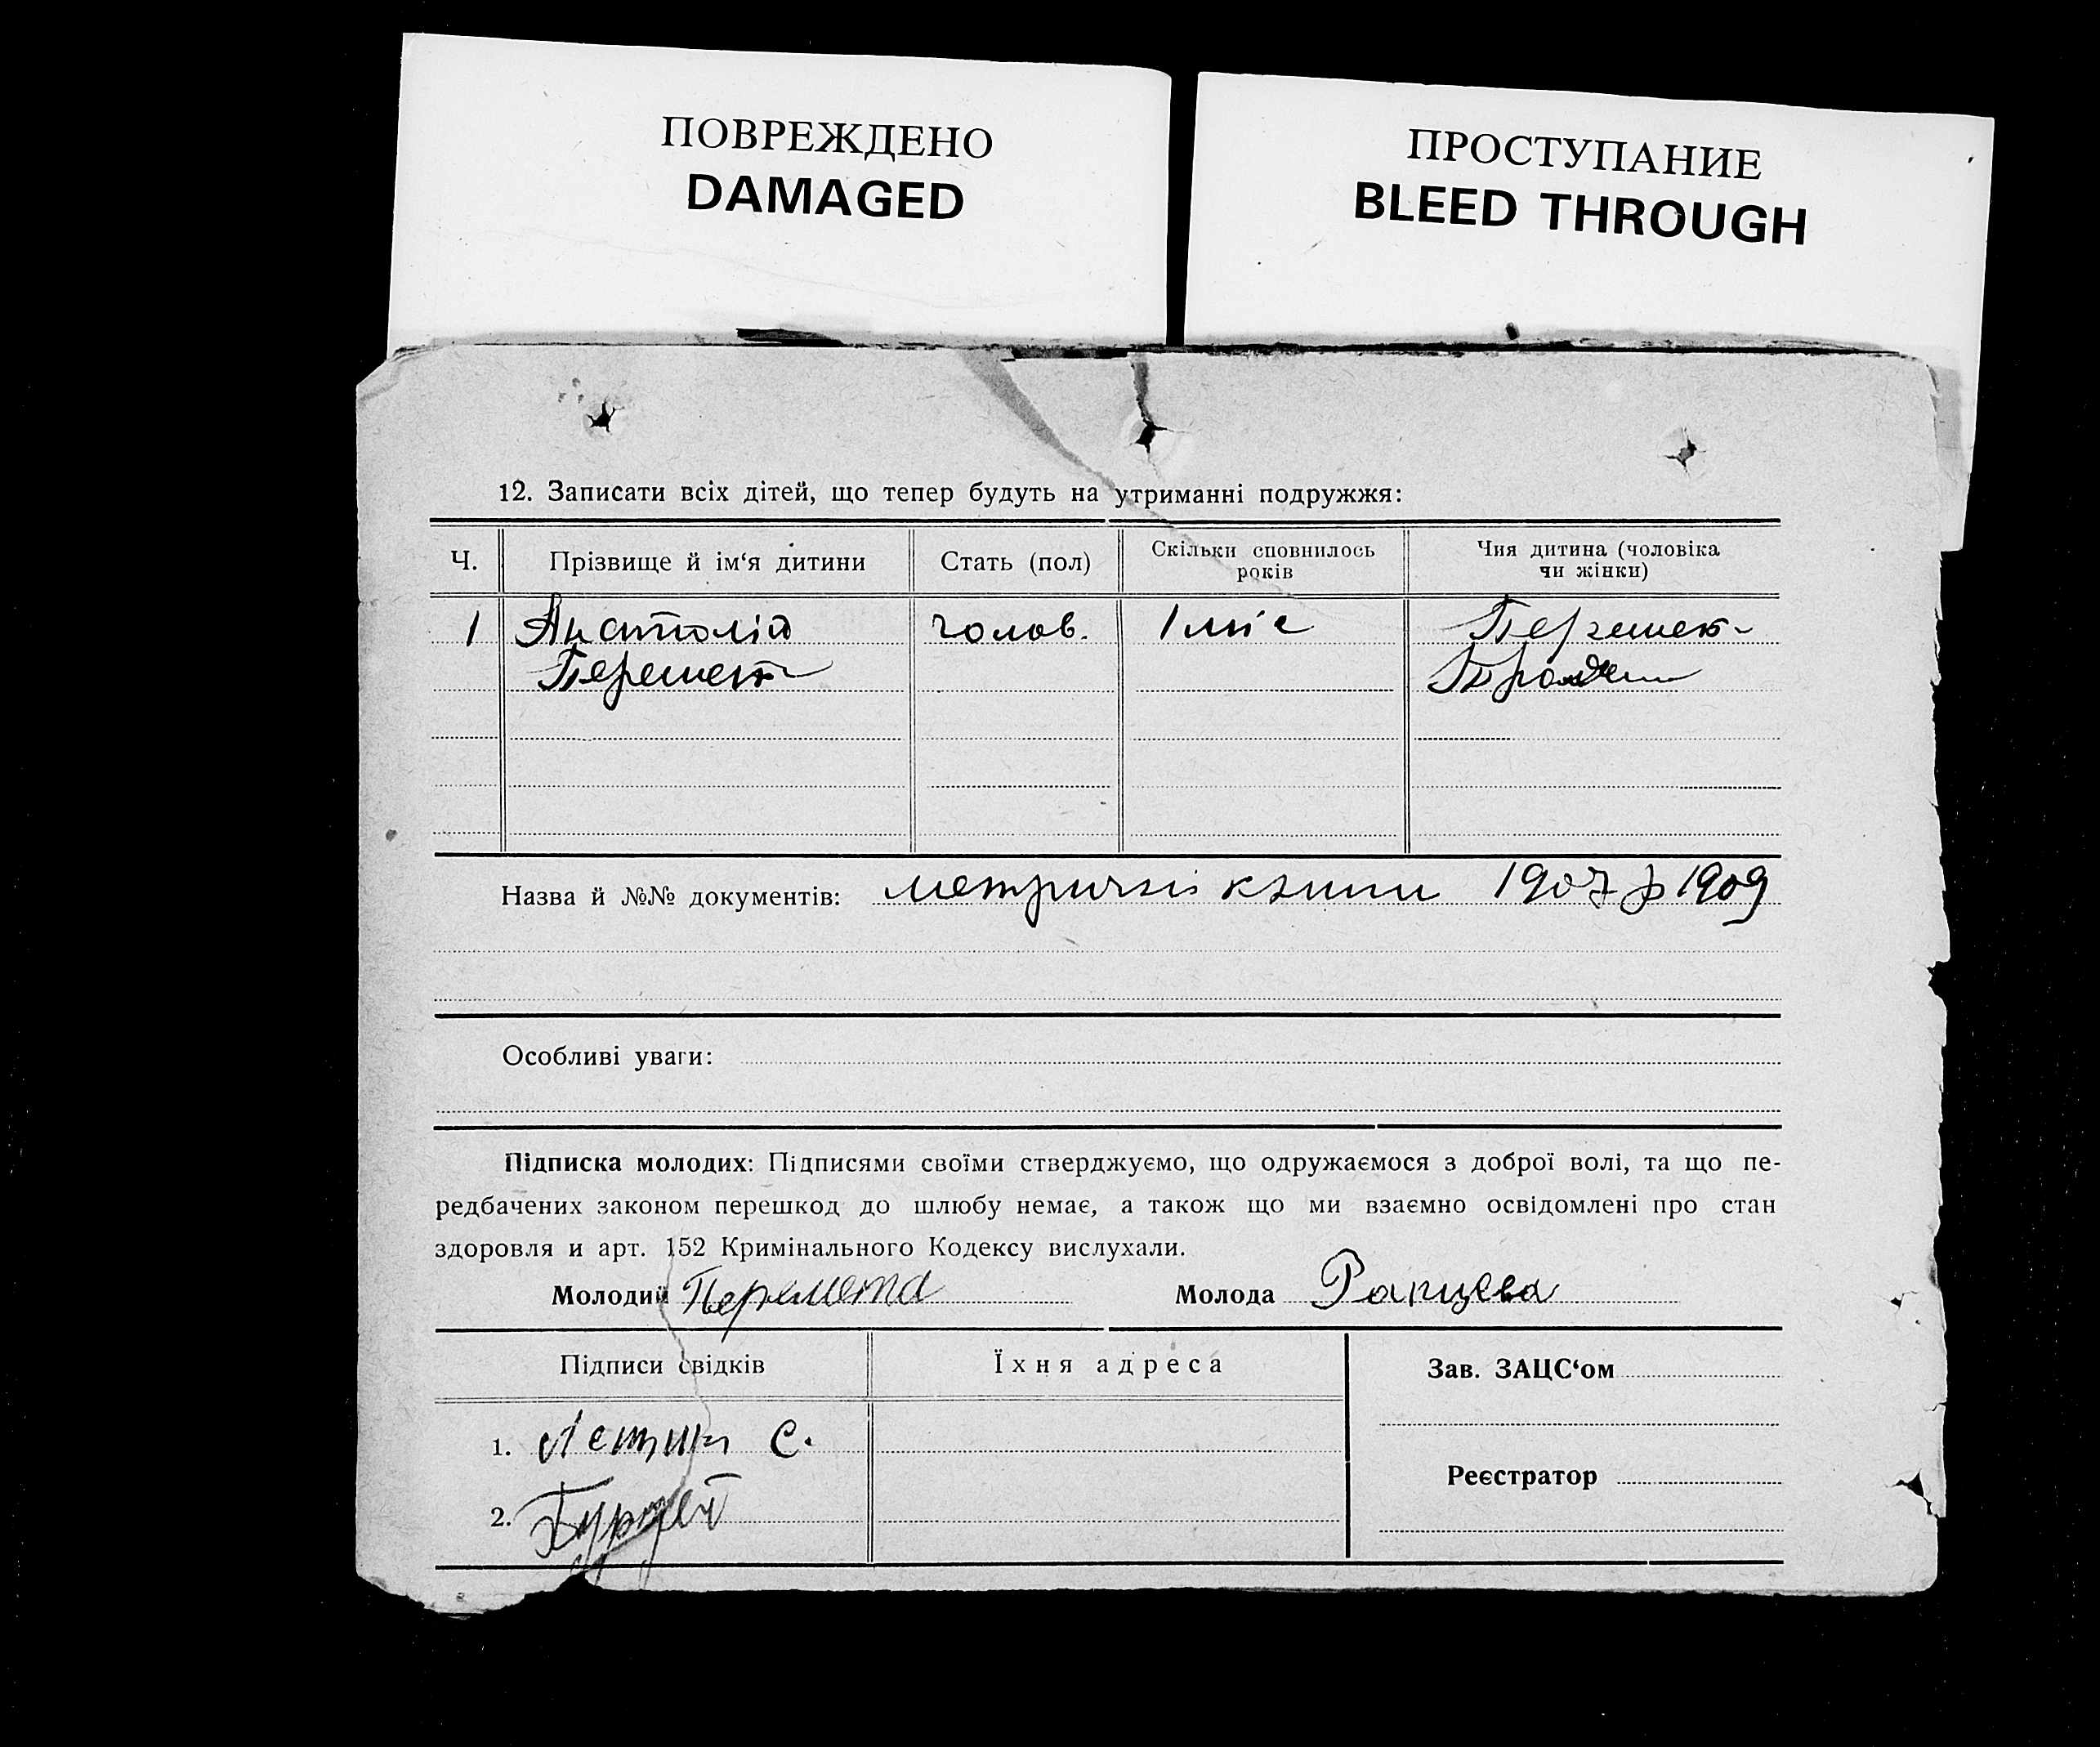 ПОВРЕЖДЕНО
DAMAGED
ПРОСТУПАНИЕ
BLEED THROUGH
12. Записати всіх дітей, що тепер будуть на утриманні подружжя:
Ч.
Прізвище й ім‘я дитини
Стать (пол)
Скільки сповнилось
років
Чия дитина (чоловіка
чи жінки)
1 Анатолій чолов. 1 міс
Назва й №№ документів: метричні книги 1907 р 1909
Особливі уваги:
Підписка молодих: Підписями своїми стверджуємо, що одружаємося з доброї волі, та що пе-
редбачених законом перешкод до шлюбу немає, а також що ми взаємно освідомлені про стан
здоровля и арт. 152 Кримінального Кодексу вислухали.
Молодий Перемета Молода Рапцева
Підписи свідків
Їхня адреса
Зав. ЗАЦС‘ом
1. С.
Реєстратор
2.